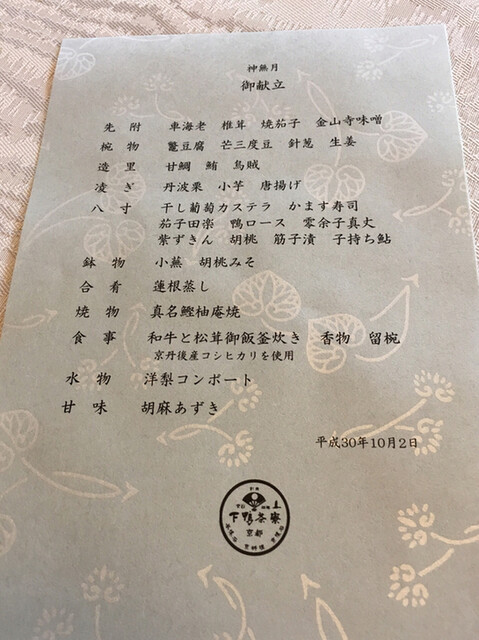 神無月
御献立
先附 車海老 椎茸 焼茄子 金山寺味噌
椀物 鼈豆腐 芒三度豆 針葱 生姜
造里 甘鯛 鮪 烏賊
凌ぎ 丹波栗 小芋 唐揚げ
八寸 干し葡萄カステラ かます寿司
茄子田楽 鴨ロース 零余子真丈
紫ずきん 胡桃 筋子漬 子持ち鮎
鉢物 小蕪 胡桃みそ
合肴 蓮根蒸し
焼物 真名鰹柚庵焼
食事 和牛と松茸御飯釜炊き 香物 留椀
京丹後産コシヒカリを使用
水物 洋梨コンポート
甘味 胡麻あずき
平成30年10月2日
下鴨茶寮
京都